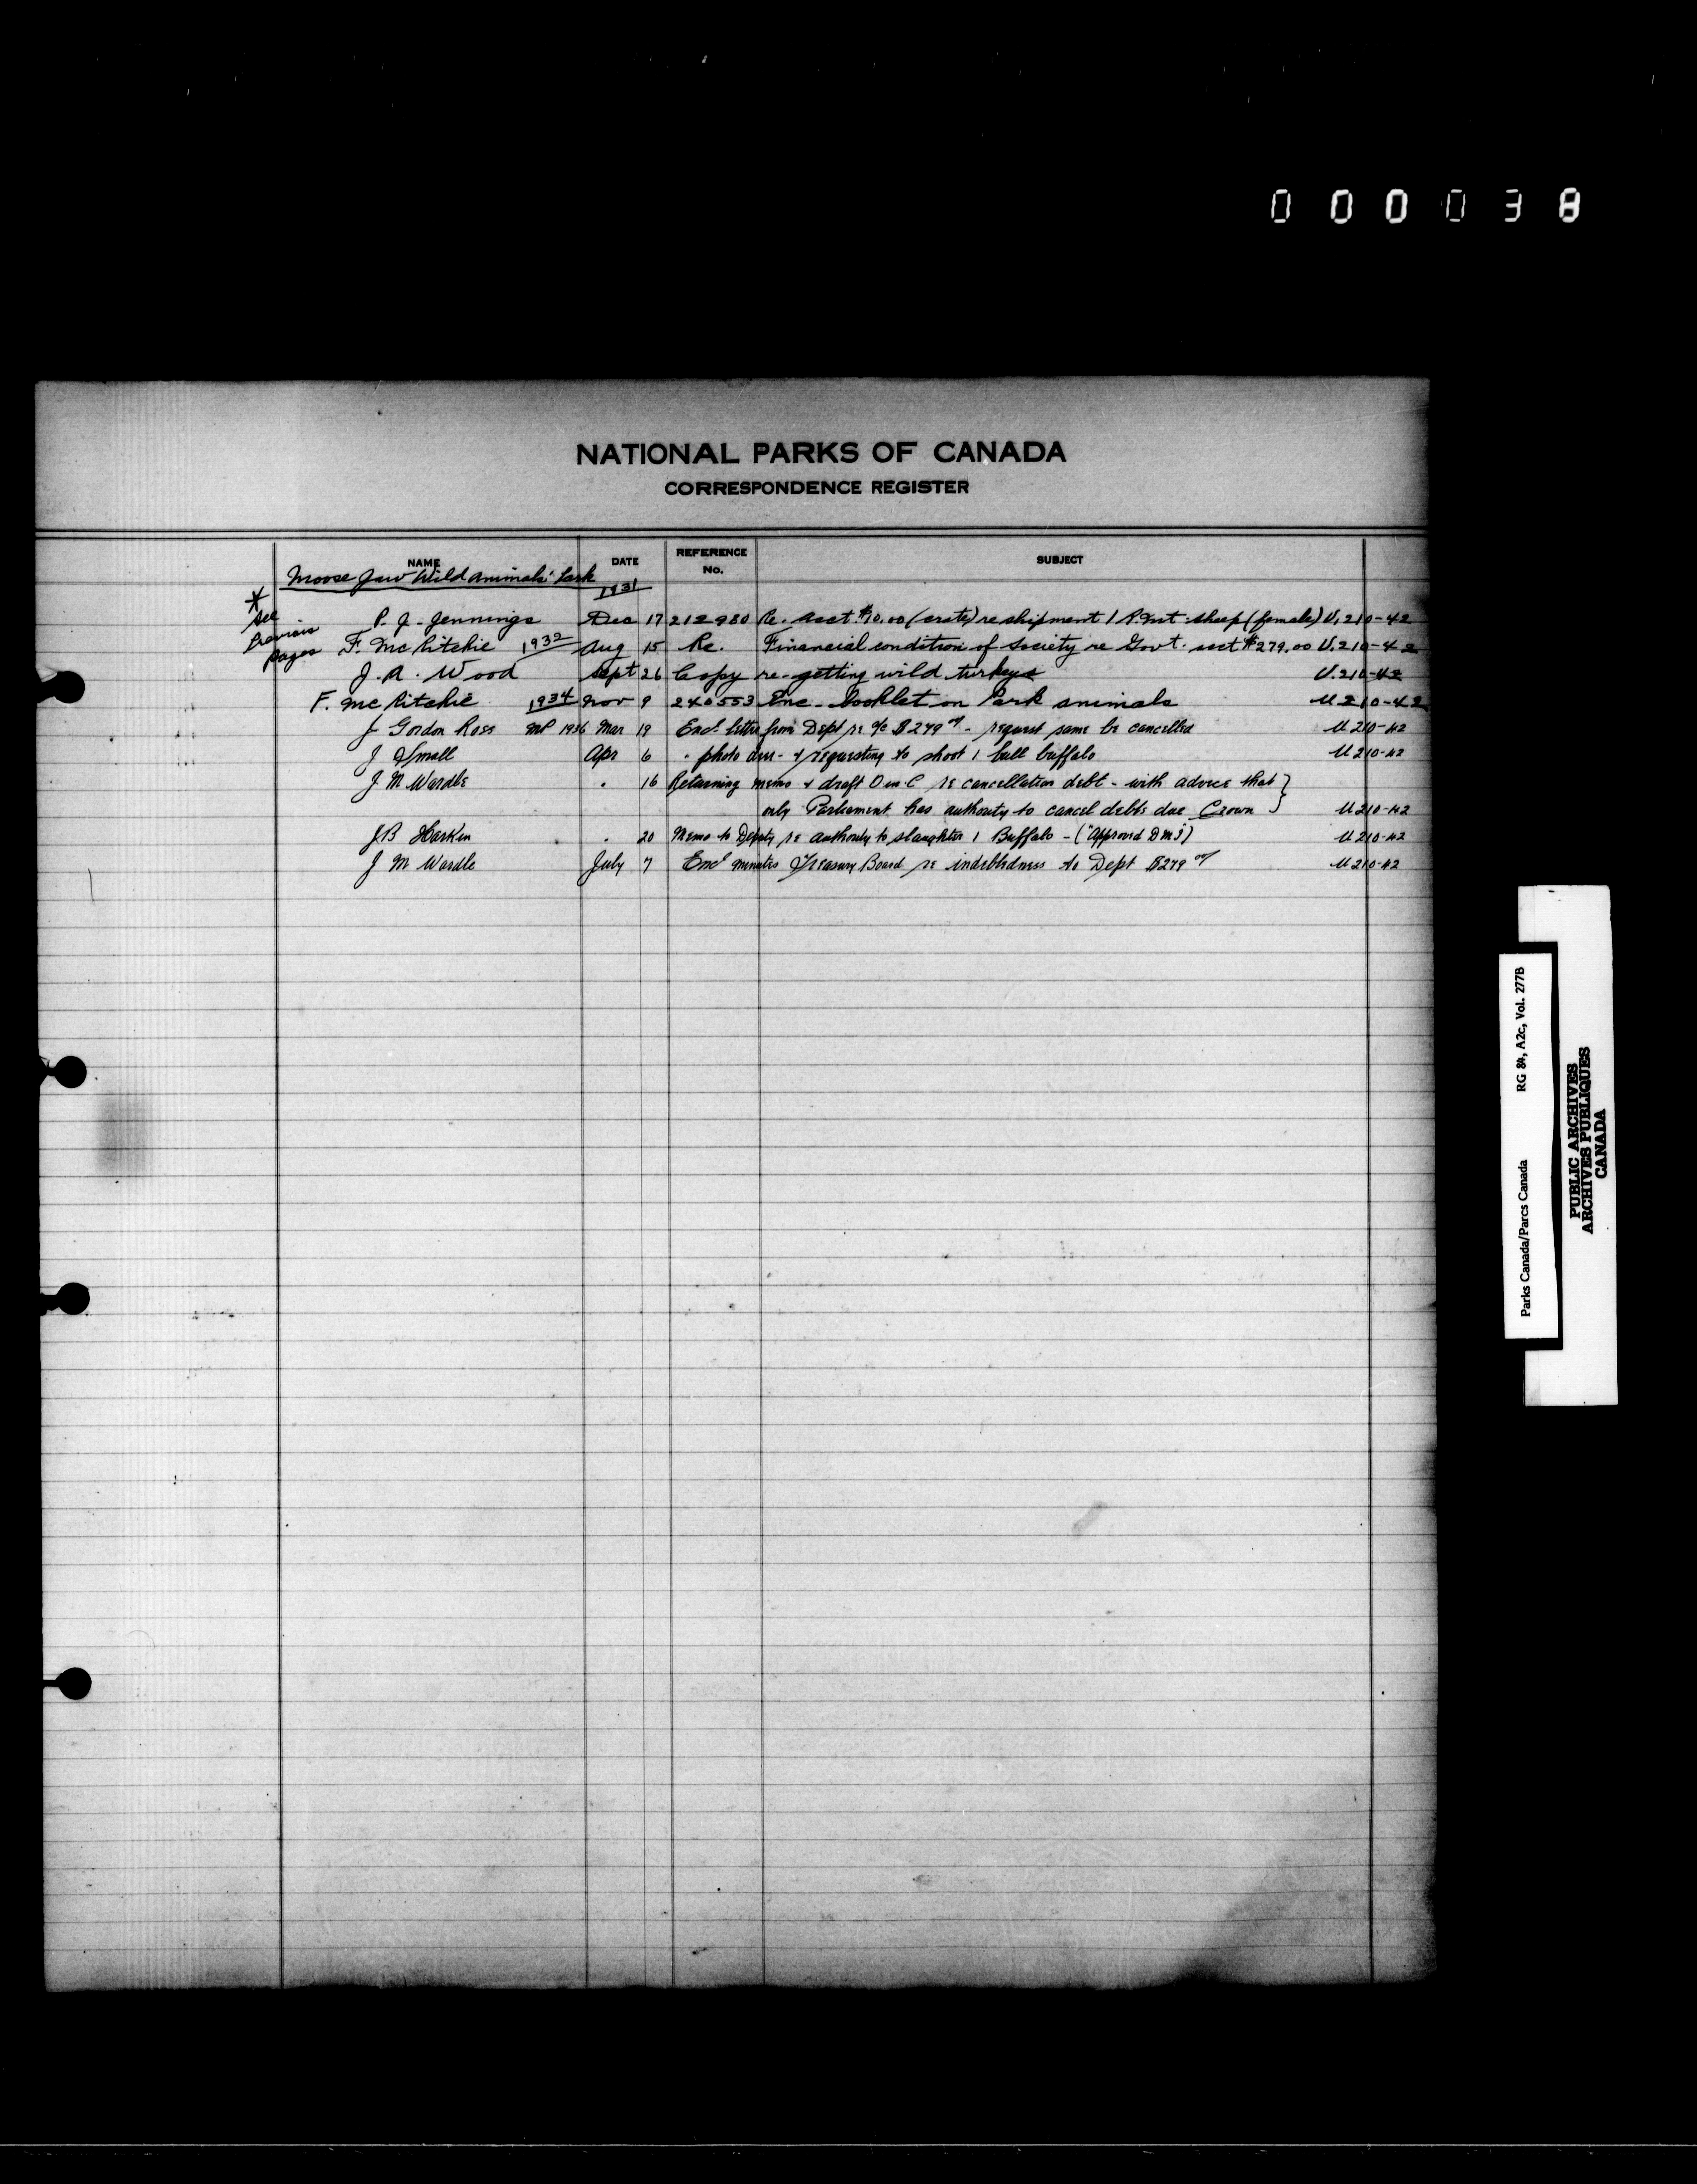 0 0 0 0 3 8
NATIONAL PARKS OF CANADA
CORRESPONDENCE REGISTER
NAME DATE REFERENCE No. SUBJECT
Moose Jaw Wild Animals' Park 1931
* See Previous Pages
P. J. Jennings Dec 17 212980 Re. acct. $10.00 (crate) re shipment 1 R. Mt. sheep (female) U.210-42
F. McRitchie 1932 Aug 15 Re. Financial condition of Society re Govt. acct $279.00 U.210-42
J. A. Wood Sept 26 Copy re-getting wild turkeys U.210-42
F. McRitchie 1934 Nov 9 240553 Enc. booklet on Park animals U 210-42
J Gordon Ross MP 1936 Mar 19 Encl. letter from Dept re a/c $279.00 - request same be cancelled U 210-42
J Small Apr 6 " photo & requesting to shoot 1 bull buffalo U 210-42
J M Wardle " 16 Returning memo & draft O in C re cancellation debt - with advice that
only Parliament has authority to cancel debts due Crown U 210-42
J B Harkin " 20 Memo to Deputy re authority to slaughter 1 Buffalo - ("Approved D M I") U 210-42
J M Wardle July 7 Encl minutes Treasury Board re indebtedness to Dept $279.00 U 210-42
Parks Canada/Parcs Canada RG 84, A2c, Vol. 277B
PUBLIC ARCHIVES
ARCHIVES PUBLIQUES
CANADA